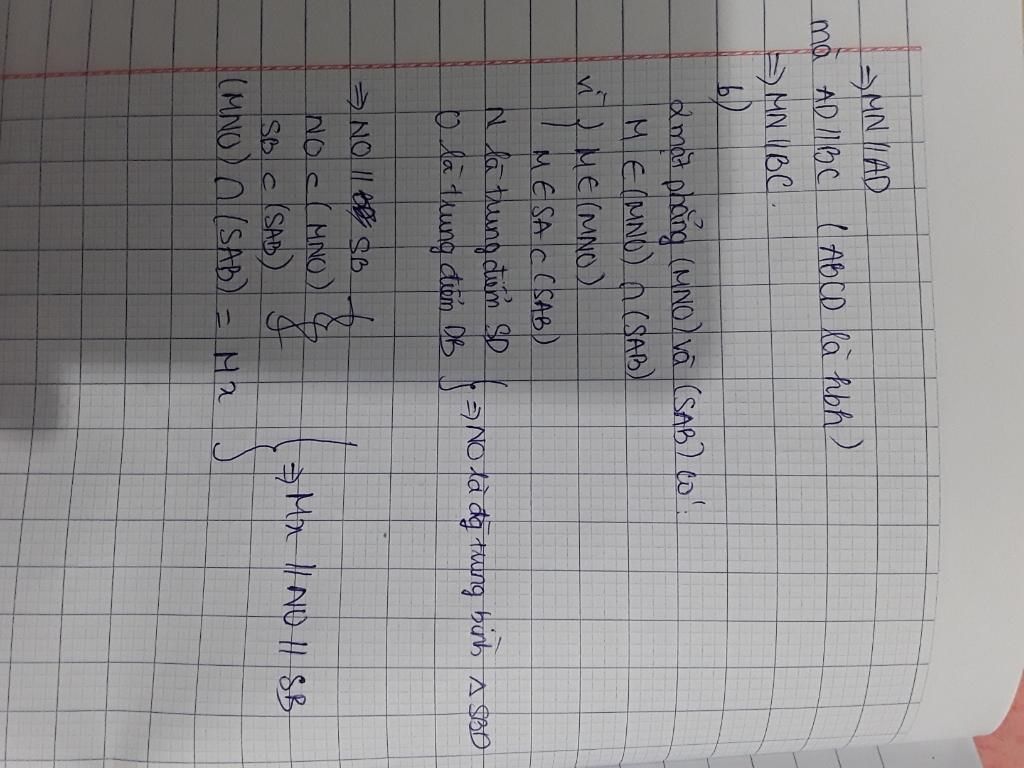 ⇒ MN // AD
mà AD // BC (ABCD là hbh)
⇒ MN // BC.
b)
2 mặt phẳng (MNO) và (SAB) có:
M ∈ (MNO) ∩ (SAB)
vì } M ∈ (MNO)
M ∈ SA ⊂ (SAB)
N là trung điểm SD
O là trung điểm DB } ⇒ NO là đg trung bình △ SBD
⇒ NO // SB
NO ⊂ (MNO)
SB ⊂ (SAB)
(MNO) ∩ (SAB) = Mx } ⇒ Mx // NO // SB